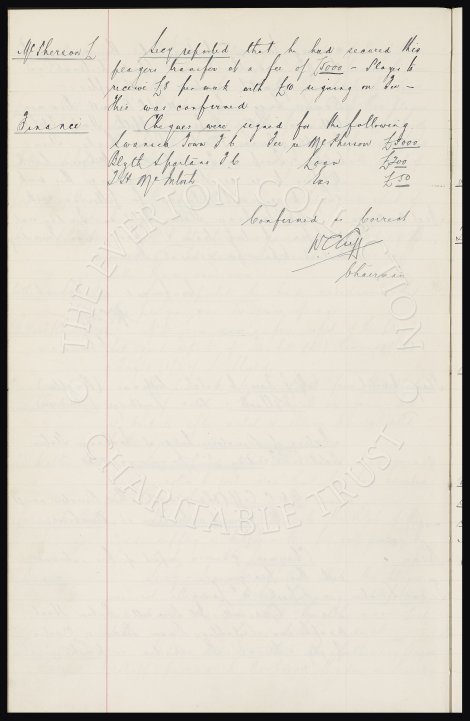 McPherson L Secy reported that he had secured this
players transfer at a fee of £5000 - Player to
receive £8 per week with £10 signing on Fee -
This was confirmed
Finance Cheques were signed for the following
Swansea Town F C Fee re McPherson £5000
Blyth Spartans F C Logan £200
T H McIntosh £50
Confirmed as Correct
W C Cuff
Chairman
THE EVERTON COLLECTION
CHARITABLE TRUST